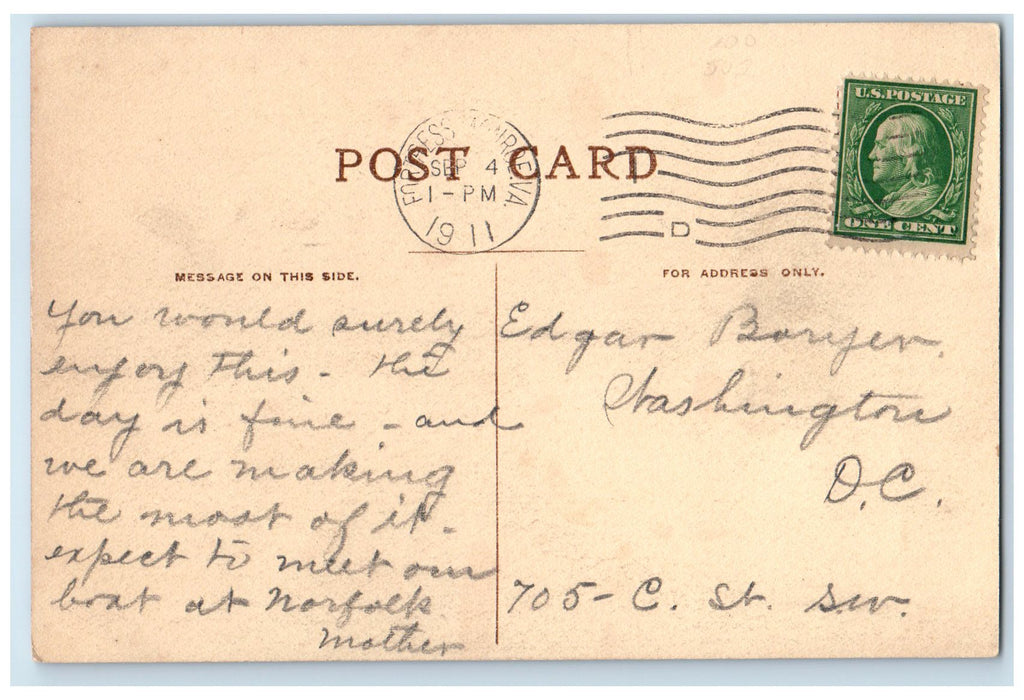 U.S. POSTAGE
ONE CENT
POST CARD
FORTRESS MONROE, VA
SEP 4
1 - PM
1911
D
MESSAGE ON THIS SIDE.
FOR ADDRESS ONLY.
You would surely
enjoy this - the
day is fine - and
we are making
the most of it -
expect to meet our
boat at Norfolk
Mother
Edgar
Washington
D.C.
705 - C. St. S.W.